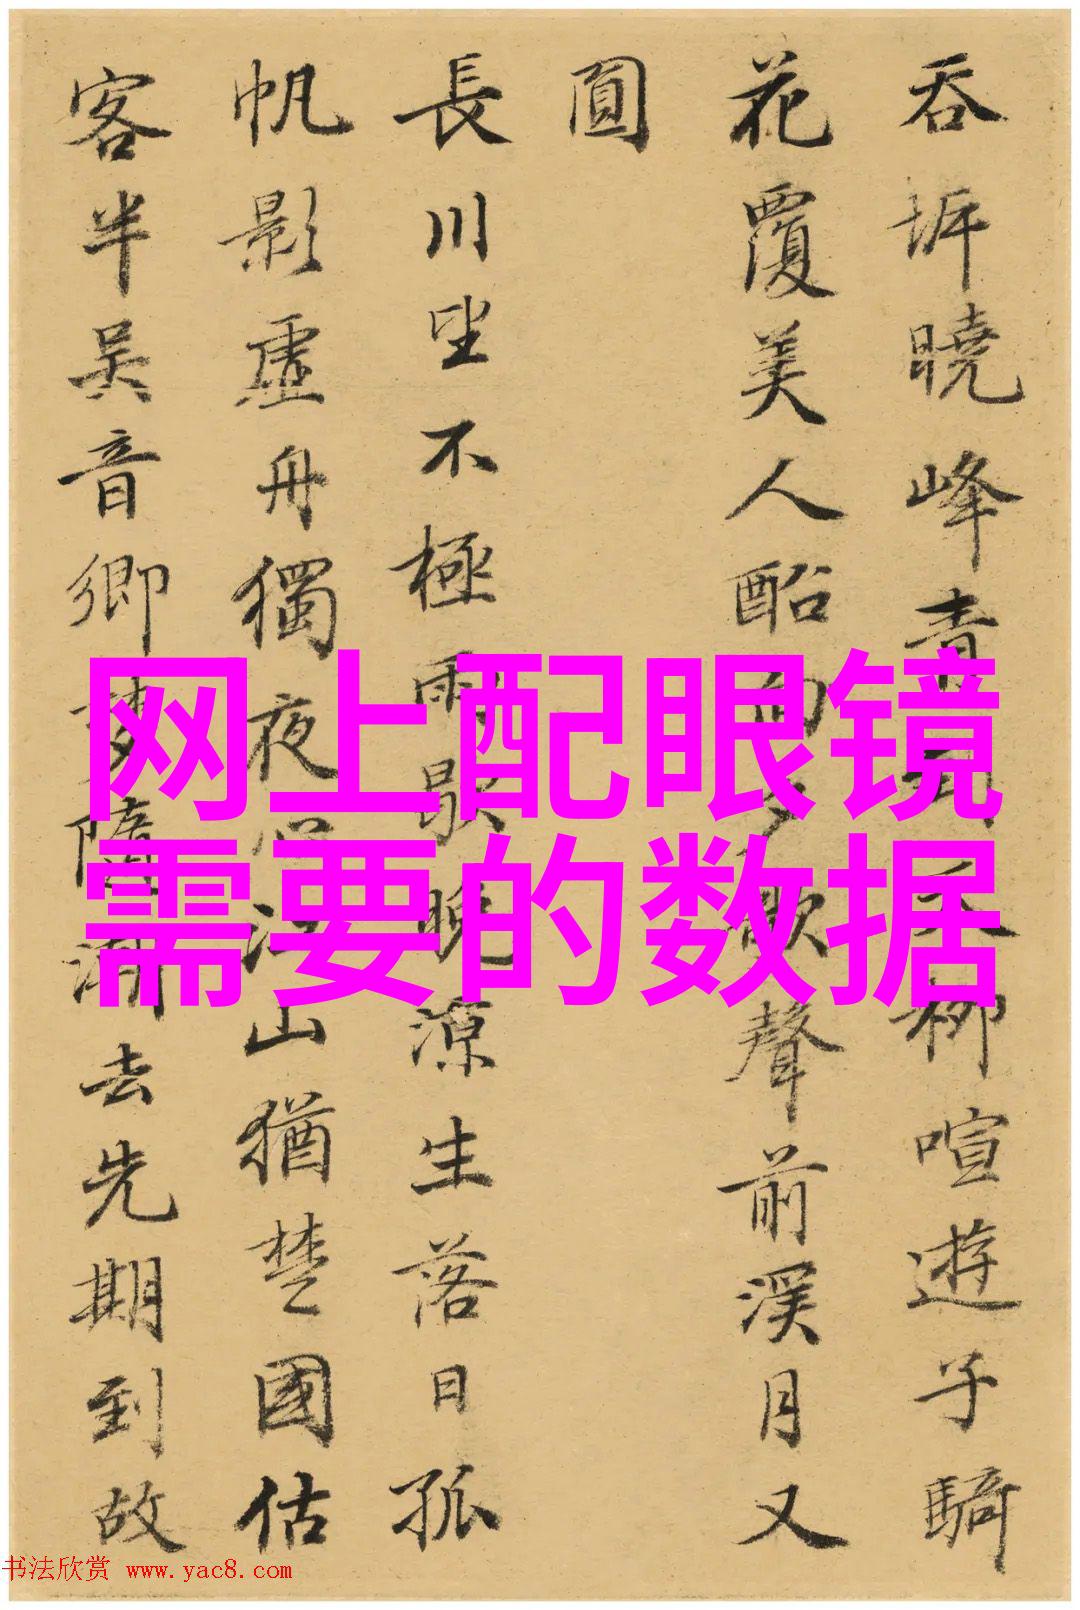 吞坼曉峰青柳喧遊子騎
花覆美人酩向夕歌聲前溪月又
圓
長川坐不極雨歇晚涼生落日孤
帆影虛舟獨夜心江山猶楚國估
客半吳音鄉夢隨潮去先期到故
网上配眼镜
需要的数据
书法欣赏 www.yac8.com